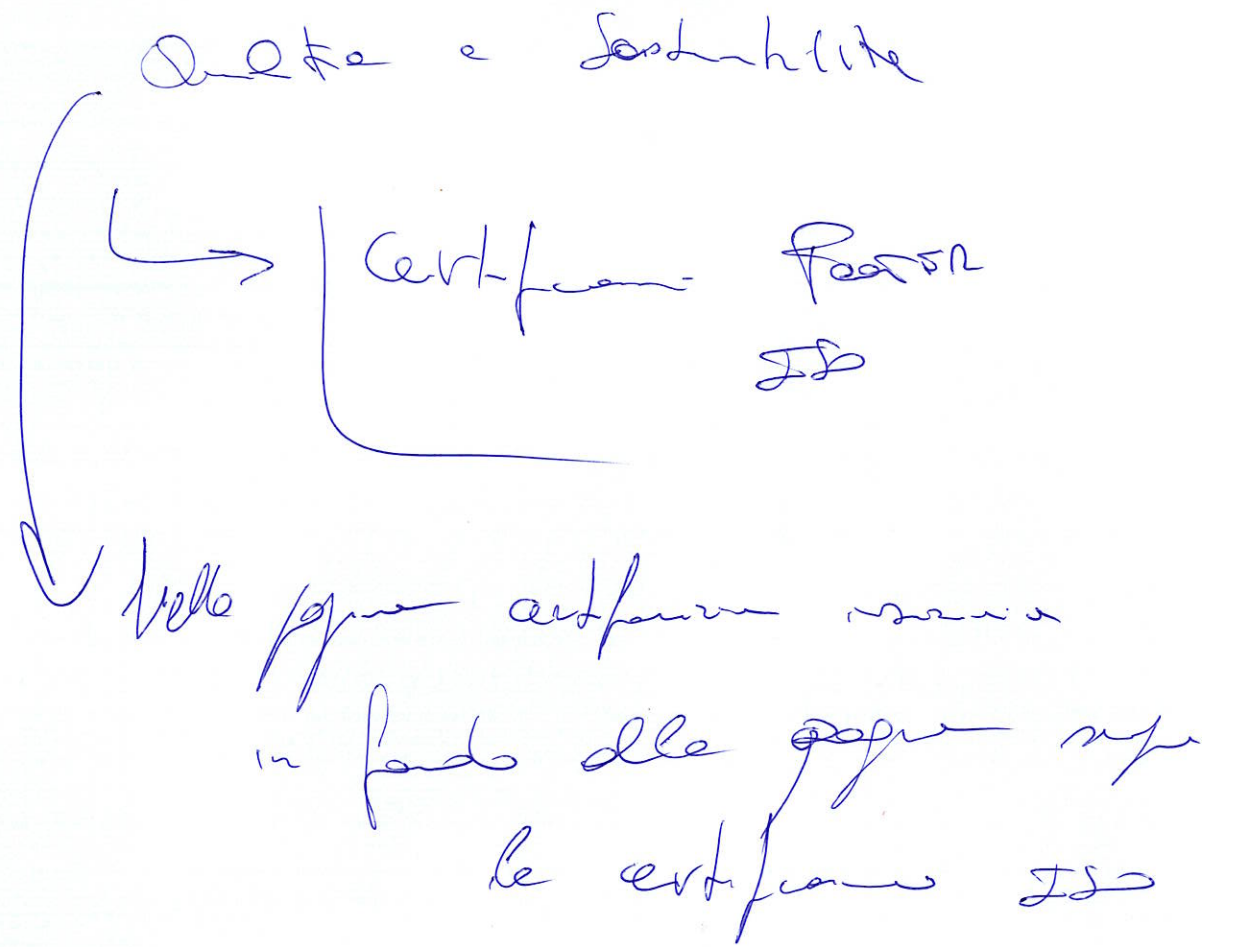 Qualità e Sostenibilità
Certificazioni
ISO
Nella pagina certificazioni
in fondo alla pagina
la certificazione ISO